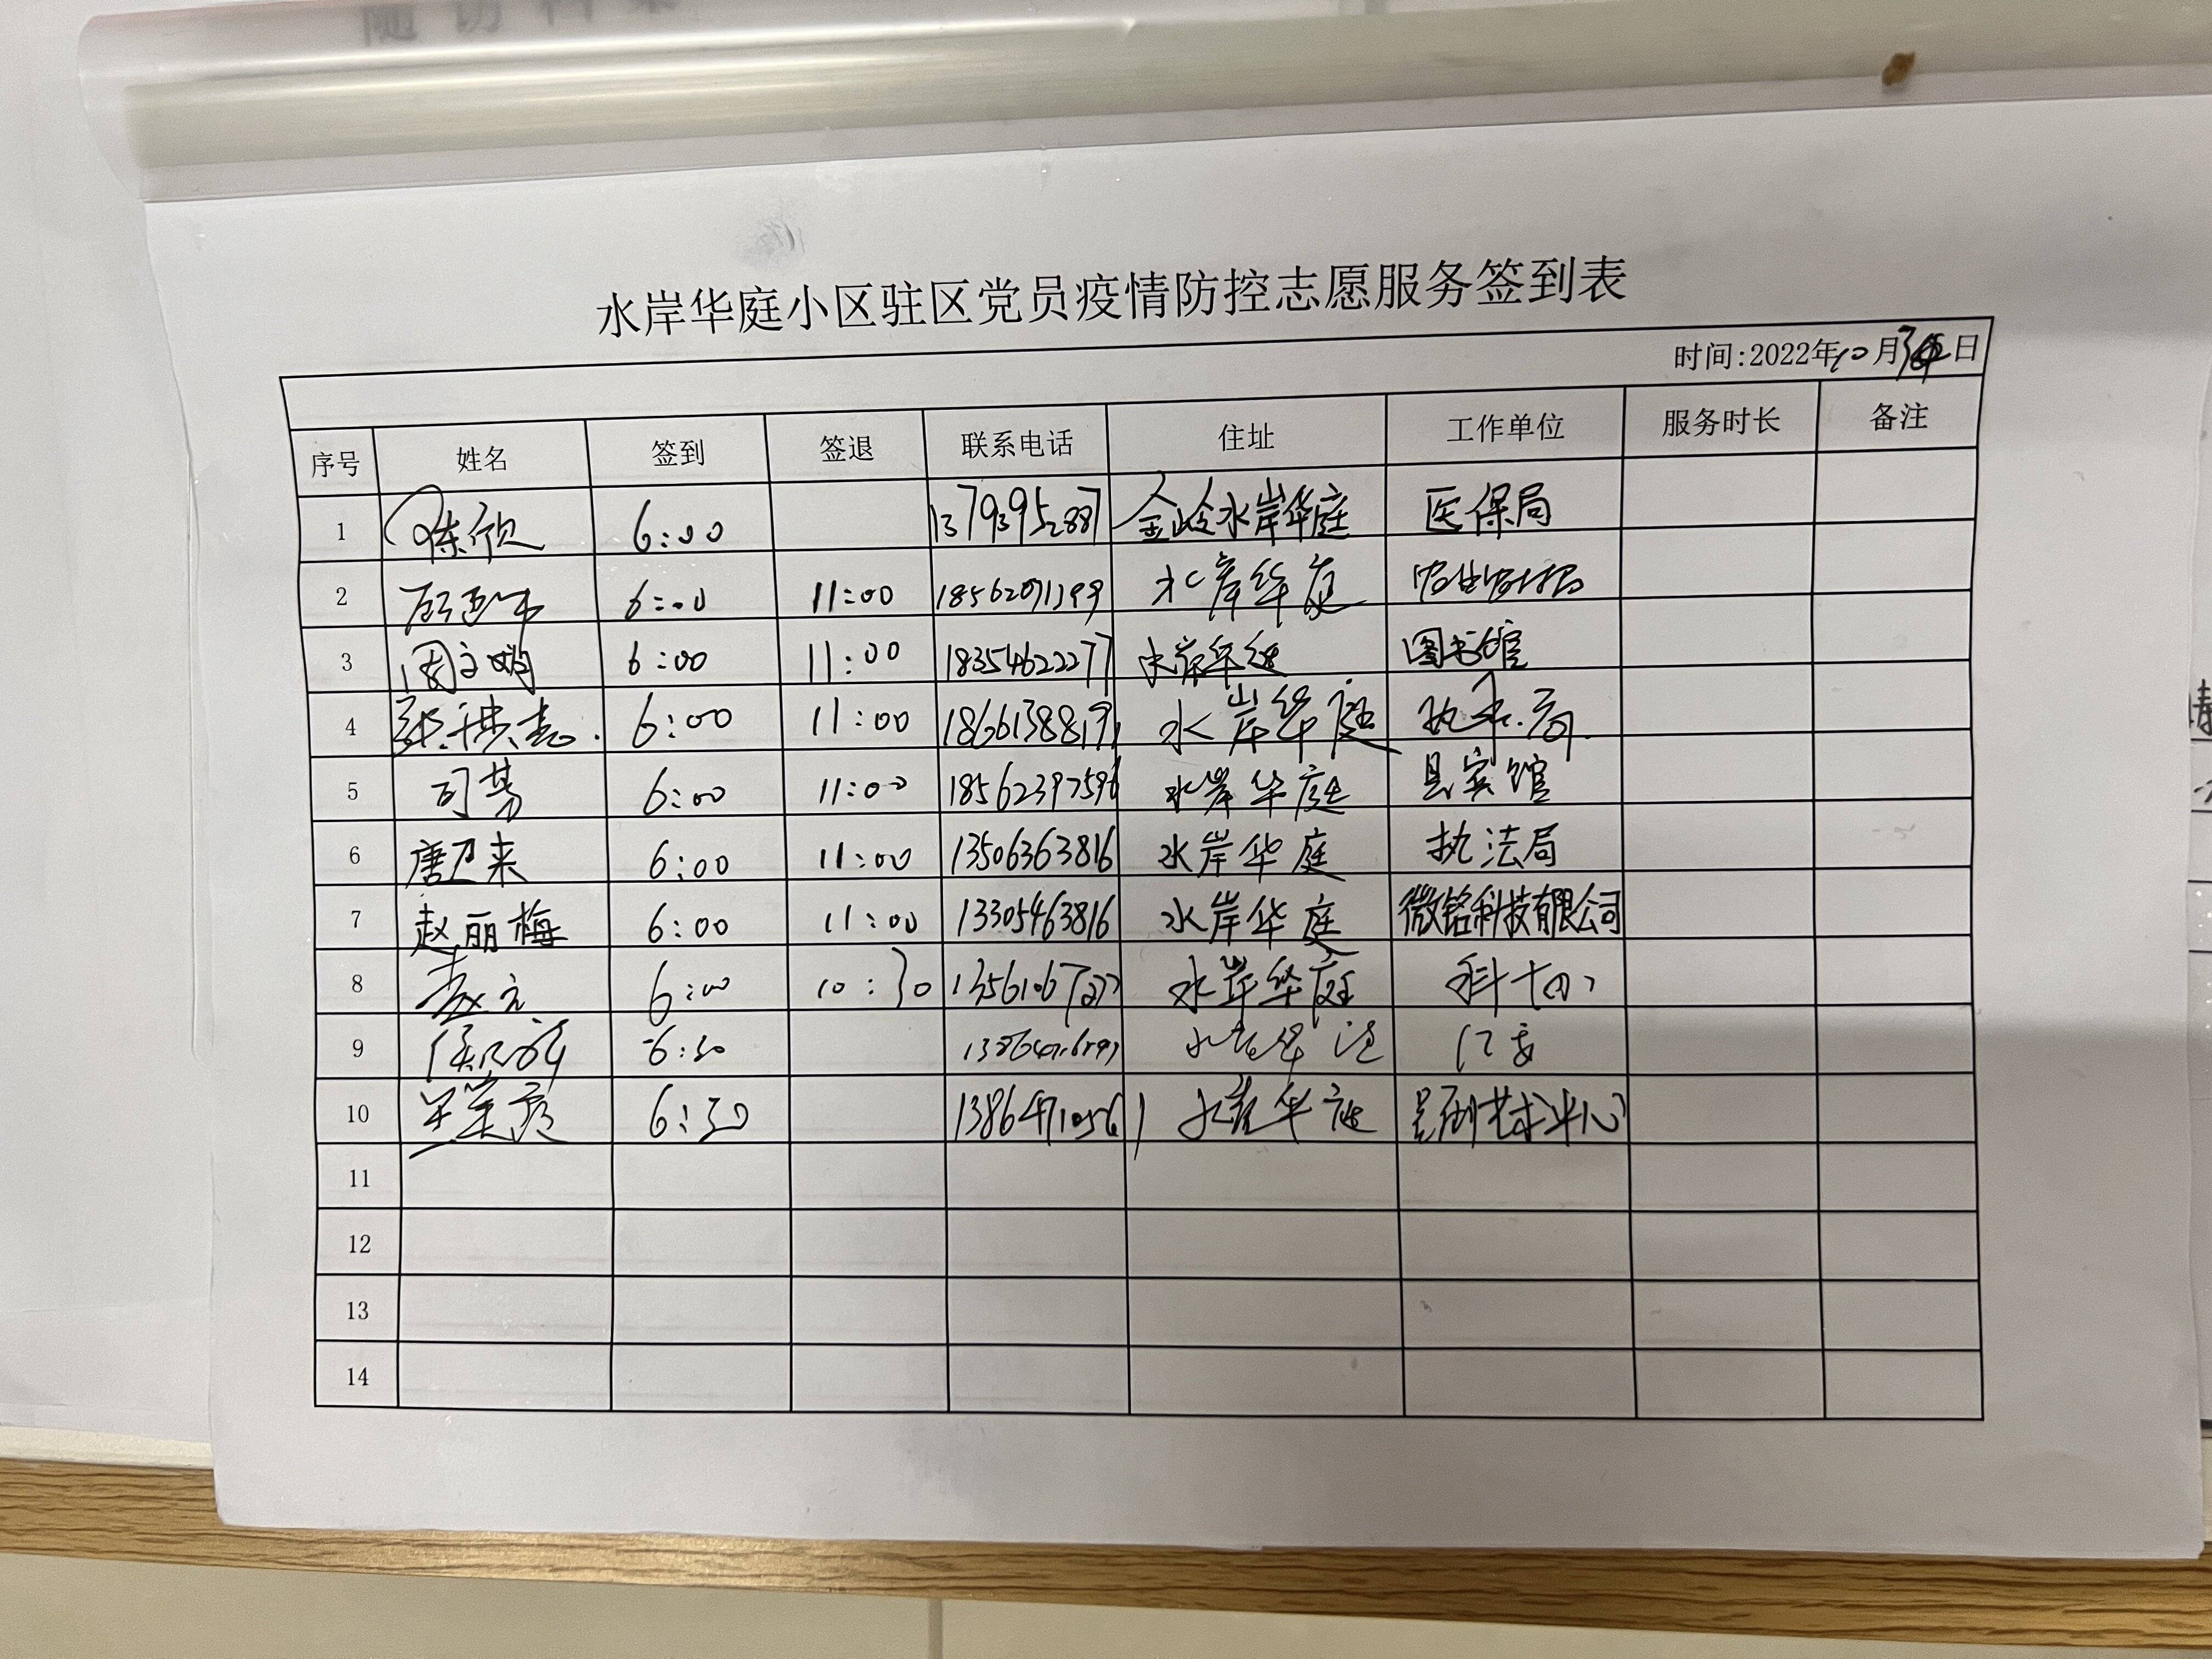 水岸华庭小区驻区党员疫情防控志愿服务签到表
时间:2022年10月 日
序号 姓名 签到 签退 联系电话 住址 工作单位 服务时长 备注
1 陈欣 6:00 13793952887 金岭水岸华庭 医保局
2 6:00 11:00 18562071399 水岸华庭
3 周文娟 6:00 11:00 18354622277 水岸华庭 图书馆
4 6:00 11:00 18661388191 水岸华庭
5 司苗 6:00 11:00 18562397596 水岸华庭 县宾馆
6 唐卫来 6:00 11:00 13506363816 水岸华庭 执法局
7 赵丽梅 6:00 11:00 13305463816 水岸华庭 微铭科技有限公司
8 6:00 10:30 水岸华庭
9 6:30 水岸华庭
10 6:30 13864710561 水岸华庭 吕剧艺术中心
11
12
13
14